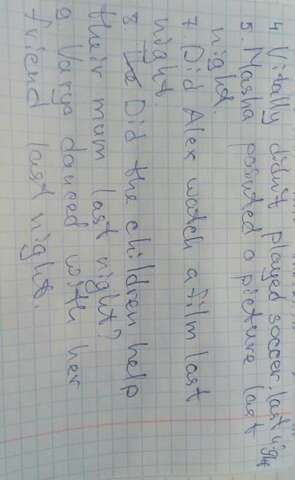 4. Vitally didn't played soccer last night
5. Masha painted a picture last
night.
7. Did Alex watch a film last
night.
8. Did the children help
their mum last night?
9. Varya danced with her
friend last night.